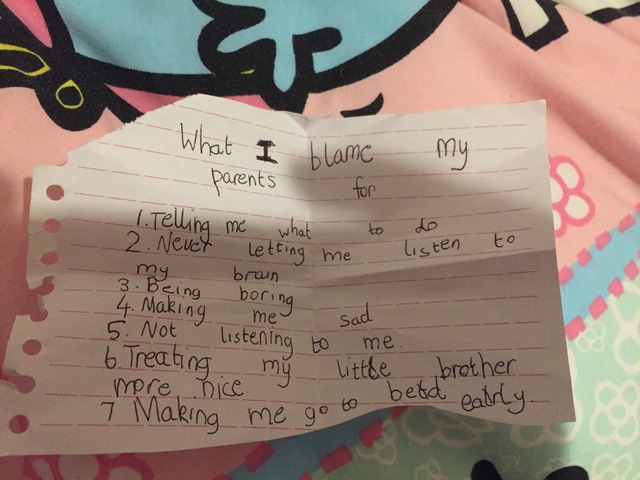 What I blame my
parents for
1. Telling me what to do
2. Never letting me listen to
my brain
3. Being boring
4. Making me sad
5. Not listening to me.
6. Treating my little brother
more nice
7 Making me go to bed early.